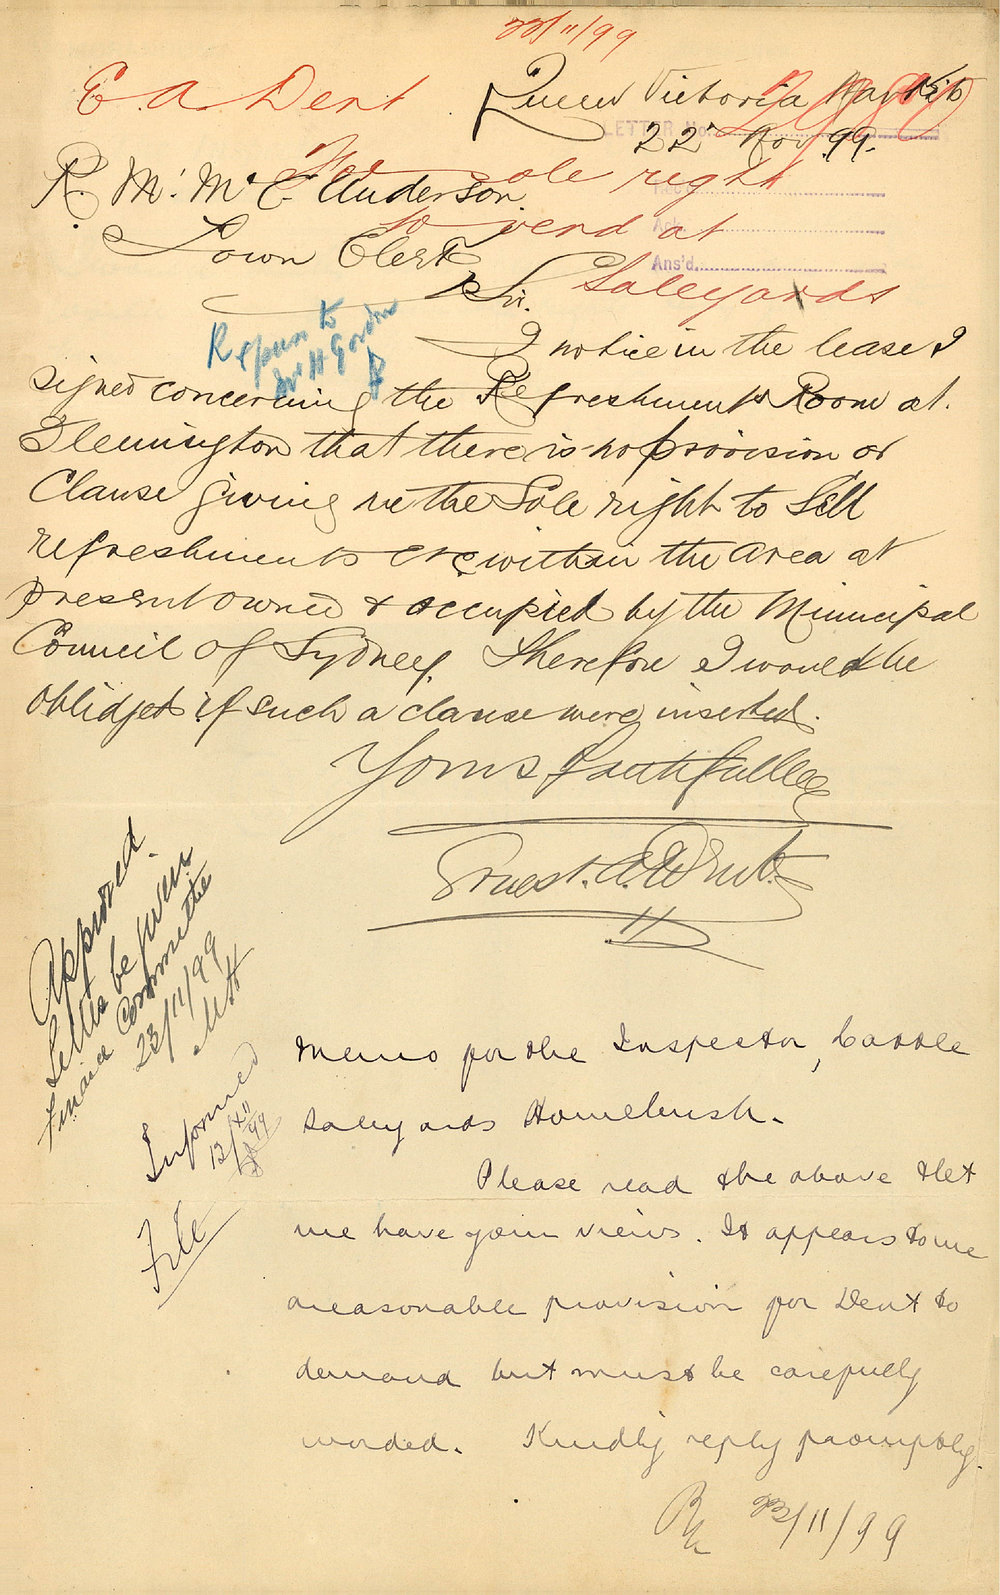 22/11/99
E A Dent
re sole right
to vend at
Saleyards
LETTER No.
Ack
Ans'd
Queen Victoria Markets
22nd Nov 99.
R. M. McC. Anderson.
Town Clerk
Sir.
Report to
Mr H Gordon
I notice in the lease I
signed concerning the Refreshments Room at
Flemington that there is no provision or
Clause giving me the Sole right to Sell
refreshments etc within the area at
present owned & occupied by the Municipal
Council of Sydney. Therefore I would be
oblidged if such a clause were inserted.
Yours faithfully
Ernest. A. Dent.
Approved.
Letter be given
Finance Committee
23/11/99
Informed
File
Memo for the Inspector, Cattle
Saleyards Homebush.
Please read the above & let
me have your views. It appears to me
a reasonable provision for Dent to
demand but must be carefully
worded. Kindly reply promptly.
23/11/99